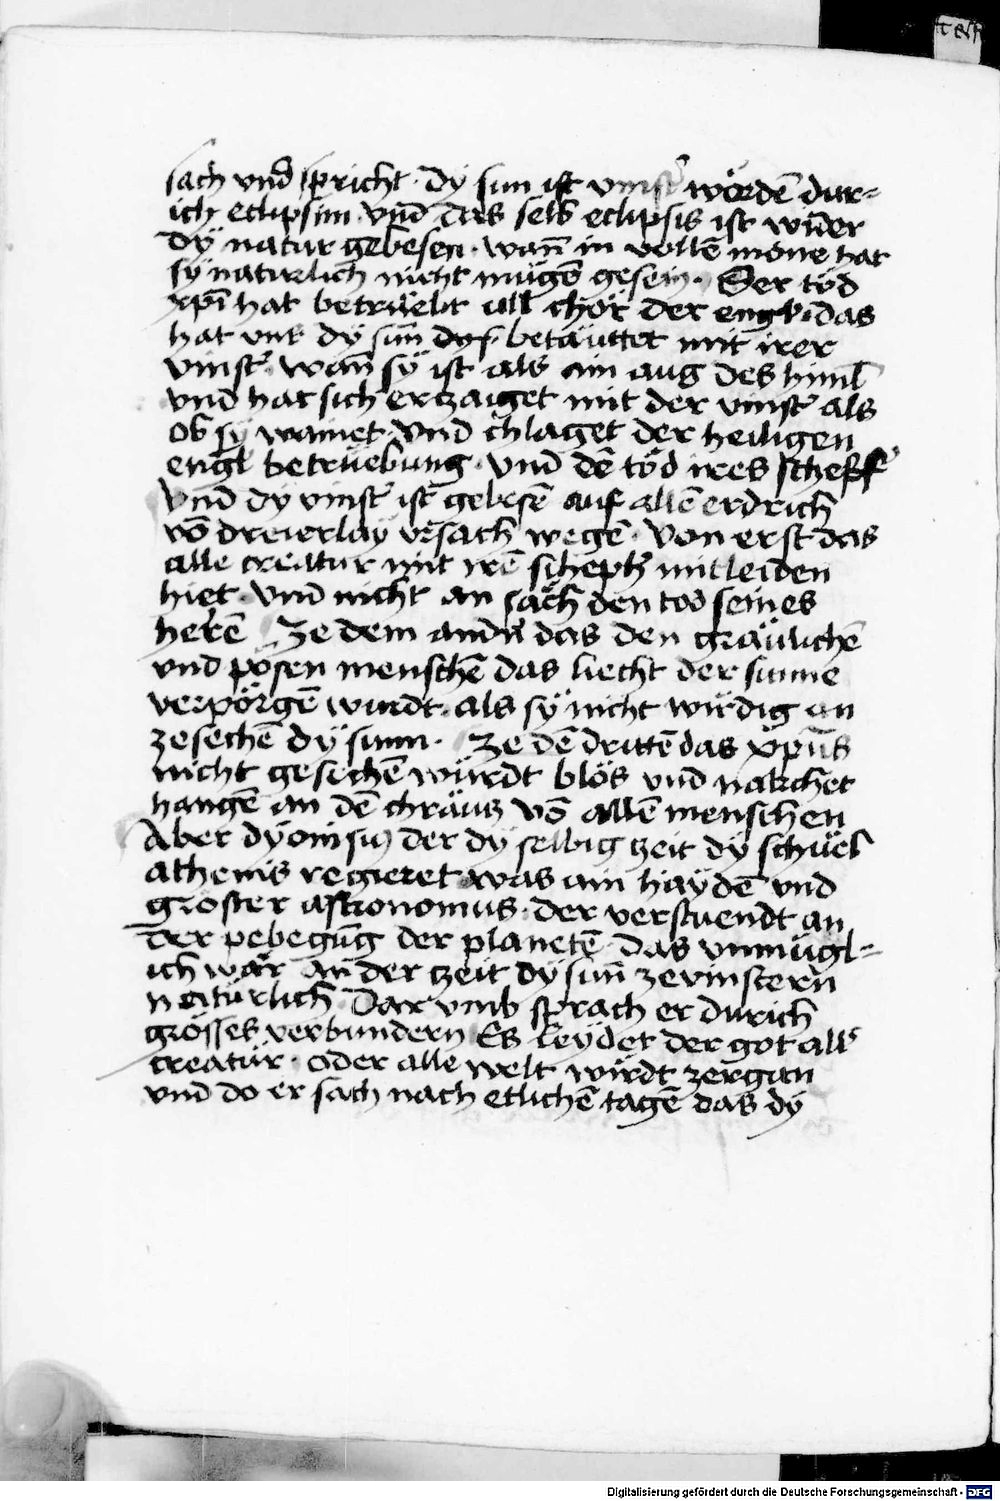 sach vnd spricht · dÿ sun ist vinst͛ wördē dur=
ich eclipsim · vnd das selb eclipsis ist wid̄er
dÿ natur gebesen · wan̄ in vollē mone hat
sÿ naturlich nicht mügē gesein · Der töd
xp̄i hat betrüebt all chör der engl · das
hat vns dÿ sun̄ betäuttet mit irer
vinst͛ · wan̄ sÿ ist als ain aug des himl̄
vnd hat sich erczaiget mit der vinst͛ als
ob sÿ wainet · vnd chlaget der heiligen
engl betrüebung · vnd dē töd ires scheff͛
vnd dÿ vinst͛ ist gebesē auf allē erdrich
vō dreierlaÿ vrsach wegē · Von erst das
alle creatur mit irē scheph͛ mitleiden
hiet · vnd nicht an sach den tod seines
herē Ze dem andn̄ das den gräulichē
vnd pösen menschē das liecht der sunne
verpörgē wurdt · als sÿ nicht wirdig an
zesechē dÿ sunn · Ze dē drittē das xp̄us
nicht gesechē würdt blös vnd nakchet
hangē an dē chräwtz vō allē menschen
Aber dÿonisiꝰ der dÿ selbig zeit dÿ schuel
athenis regieret was ain haÿdē vnd
groster astronomus · der verstuendt an
der pebegūg der planetē · das vnmügl=
ich wär an der zeit dÿ sun̄ zevinstern
naturlich · Dar vmb sprach er durich
grosses verbundern Es leÿdet der got all͛
creatur · oder alle welt würdt zergan
vnd do er sach nach etlichē tagē das dÿ
Digitalisierung gefördert durch die Deutsche Forschungsgemeinschaft - DFG